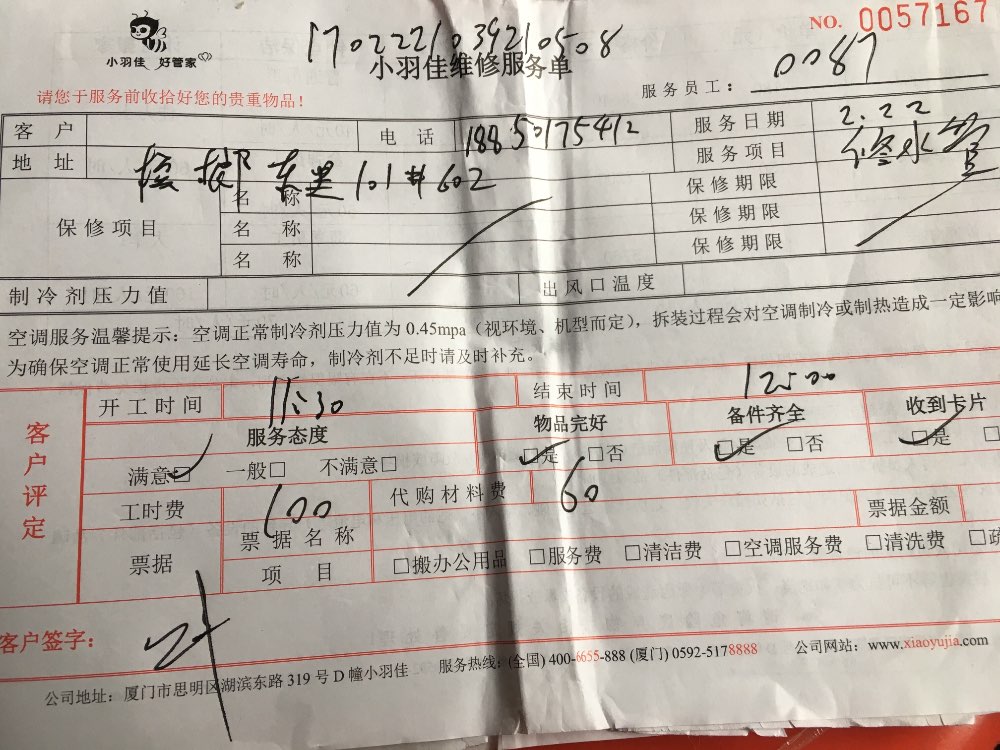 NO. 0057167
1702221039210508
小羽佳 好管家
小羽佳维修服务单
服务员工: 0087
请您于服务前收拾好您的贵重物品!
客 户 电 话 18850175412 服务日期 2.22
地 址 东里101#602 服务项目 修水管
保修项目 名 称 保修期限
名 称 保修期限
名 称 保修期限
制冷剂压力值 出风口温度
空调服务温馨提示: 空调正常制冷剂压力值为 0.45mpa (视环境、机型而定), 拆装过程会对空调制冷或制热造成一定影响
为确保空调正常使用延长空调寿命, 制冷剂不足时请及时补充。
客户评定
开工时间 11:30 结束时间 12:00
服务态度 物品完好 备件齐全 收到卡片
满意□ 一般□ 不满意□ □是 □否 □是 □否 □是 □
工时费 100 代购材料费 60 票据金额
票据 票据名称
项 目 □搬办公用品 □服务费 □清洁费 □空调服务费 □清洗费 □疏
客户签字:
公司地址: 厦门市思明区湖滨东路 319 号 D 幢小羽佳 服务热线: (全国) 400-6655-888 (厦门) 0592-5178888 公司网站: www.xiaoyujia.com